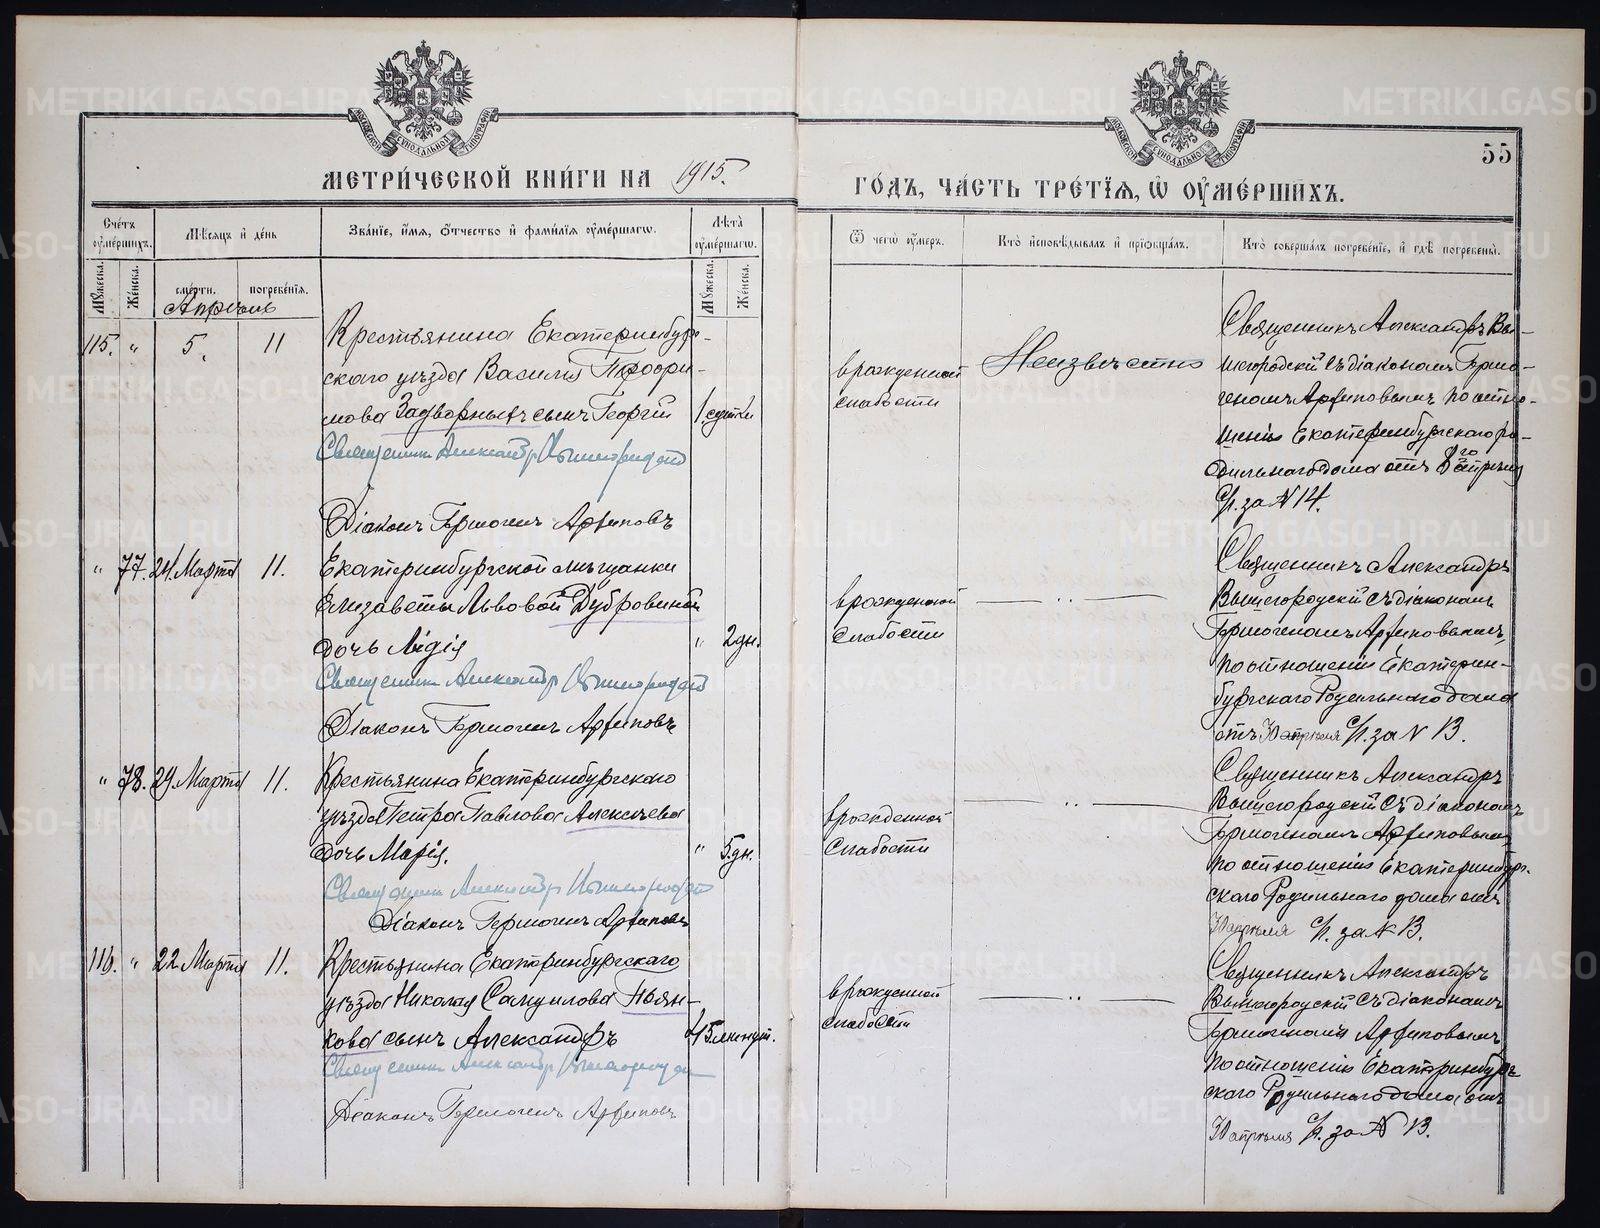 МЕТРИ́ЧЕСКОЙ КНИ́ГИ НА 1915.
ГО́ДЪ, ЧА́СТЬ ТРЕ́ТІѦ, Ѡ҆ ОУ҆МЕ́РШИХЪ.
55
Сче́тъ оу҆ме́ршихъ.
Мѣ́сяцъ и҆ де́нь
Зва́ніе, и҆́мѧ, ѻ҆́тчество и҆ фами́лїѧ оу҆ме́ршагѡ.
Лѣ́та оу҆ме́ршагѡ.
Ѿ чегѡ̀ оу҆́меръ.
Кто̀ и҆сповѣ́дывалъ и҆ прїѡбща́лъ.
Кто̀ соверша́лъ погребе́нїе, и҆ гдѣ̀ погребены̀.
Мꙋ́жеска.
Же́нска.
сме́рти.
погребе́нїѧ.
Мꙋ́жеска.
Же́нска.
Апрѣль
115. " 5. 11
Крестьянина Екатеринбург-
скаго уѣзда Василія
Задворныхъ сынъ Георгій
1. сутки
Священникъ Александръ Вышегородскій
Діаконъ Гермогенъ Архиповъ
врожденной
слабости
Неизвѣстно
Священникъ Александръ Вы-
шегородскій съ діакономъ Гермо-
геномъ Архиповымъ по отно-
шенію Екатеринбургскаго ро-
дильнаго дома отъ 8го апрѣля
с/г. за № 14.
" 77. 24. Марта 11.
Екатеринбургской мѣщанки
Елизаветы Львовой Дубровиной
дочь Лидія
" 2 дн.
Священникъ Александръ Вышегородскій
Діаконъ Гермогенъ Архиповъ
врожденной
слабости
— " —
Священникъ Александръ
Вышегородскій съ діакономъ
Гермогеномъ Архиповымъ,
по отношенію Екатерин-
бургскаго Родильнаго дома
отъ апрѣля с/г. за № 13.
" 78. 29. Марта 11.
Крестьянина Екатеринбургскаго
уѣзда Петра Павлова Алексѣева
дочь Марія.
" 5. дн.
Священникъ Александръ Вышегородскій
Діаконъ Гермогенъ Архиповъ
врожденной
слабости
— " —
Священникъ Александръ
Вышегородскій съ діакономъ
Гермогеномъ Архиповымъ,
по отношенію Екатеринбург-
скаго Родильнаго дома отъ
апрѣля с/г. за № 13.
116. " 22 Марта 11.
Крестьянина Екатеринбургскаго
уѣзда Николая Самуилова Пьян-
кова сынъ Александръ
45 минут.
Священникъ Александръ Вышегородскій
Діаконъ Гермогенъ Архиповъ
врожденной
слабости
— " —
Священникъ Александръ
Вышегородскій съ діакономъ
Гермогеномъ Архиповымъ
по отношенію Екатеринбург-
скаго Родильнаго дома, отъ
апрѣля с/г. за № 13.
METRIKI.GASO-URAL.RU